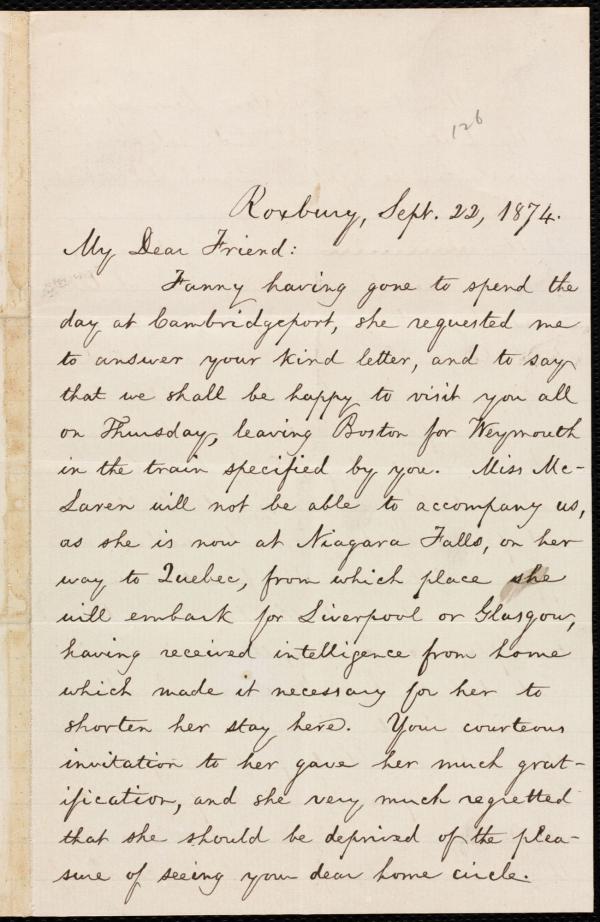 126
Roxbury, Sept. 22, 1874.
My Dear Friend:
Fanny having gone to spend the
day at Cambridgeport, she requested me
to answer your kind letter, and to say
that we shall be happy to visit you all
on Thursday, leaving Boston for Weymouth
in the train specified by you. Miss Mc-
Laren will not be able to accompany us,
as she is now at Niagara Falls, on her
way to Quebec, from which place she
will embark for Liverpool or Glasgow,
having received intelligence from home
which made it necessary for her to
shorten her stay here. Your courteous
invitation to her gave her much grat-
ification, and she very much regretted
that she should be deprived of the plea-
sure of seeing your dear home circle.